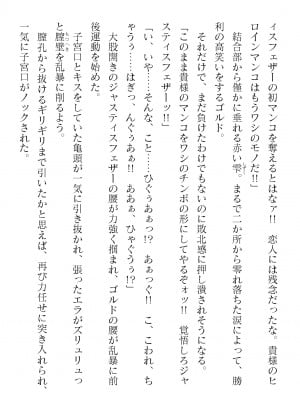 ィスフェザーの初マンコを奪えるとはなァ!!　恋人には残念だったな。貴様のヒ
ロインマンコはもうワシのモノだ!!」
　結合部から僅かに垂れる赤い雫。まるで二か所から零れ落ちた涙によって、勝
利の高笑いをするゴルド。
　それだけで、まだ負けたわけでもないのに敗北感に押し潰されそうになる。
「このまま貴様のマンコをワシのチンポの形にしてやるぞォッ!!　覚悟しろジャ
スティスフェザー!!」
「い、いや…そんな、こと……ひぐぅあぁっ!?　あぁっぐ!!　こ、こわれ、ち
ゃうぅ……はぎっ、んぐぅぁ!!　あああ、ひゃぐうぁっ!?」
　大股開きのジャスティスフェザーの腰が力強く掴まれ、ゴルドの腰が乱暴に前
後運動を始めた。
　子宮口とキスをしていた亀頭が一気に引き抜かれ、張ったエラがズリュリュっ
と膣壁を乱暴に削るよう。
　膣孔から抜けるギリギリまで引いたかと思えば、再び力任せに突き入れられ、
一気に子宮口がノックされた。